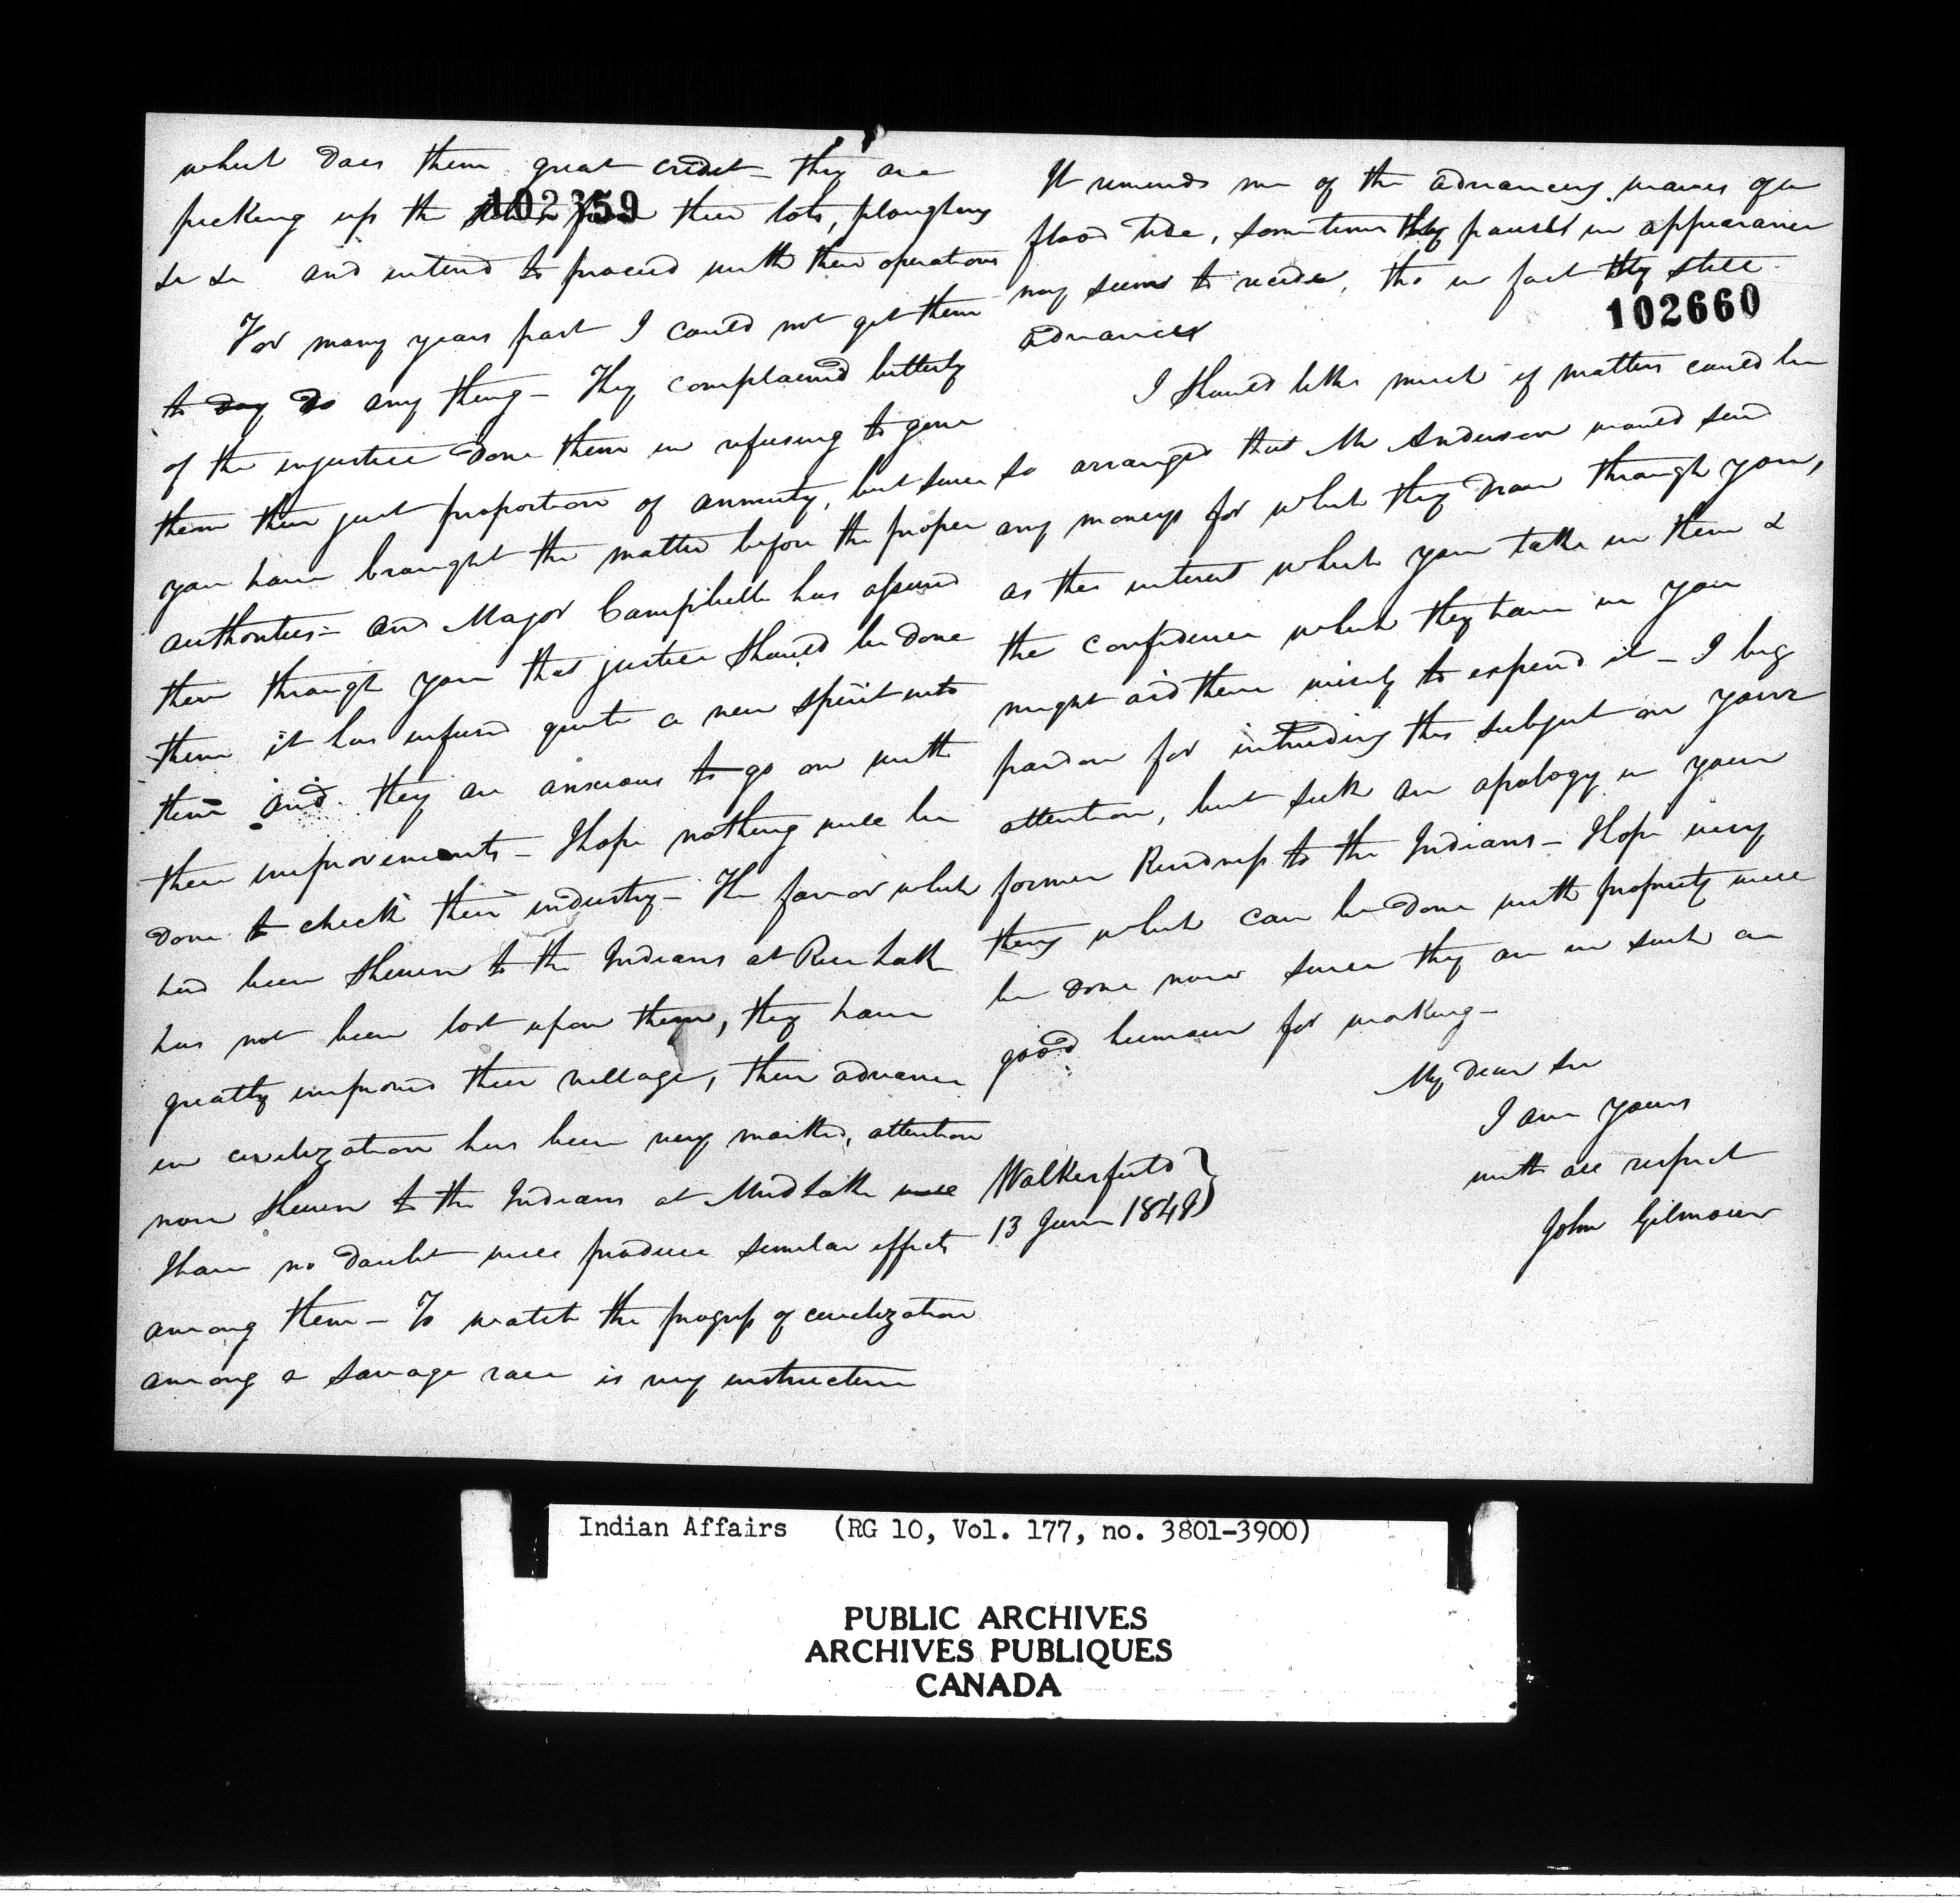 which does them great credit – they are
102359
picking up the their lots, ploughing
&c &c and intend to proceed with their operations
For many years past I could not get them
to day do any thing – They complained bitterly
of the injustice done them in refusing to give
them their just proportion of annuity, but since
you have brought the matter before the proper
authorities – and Major Campbell has assured
them through you that justice should be done
them it has infused quite a new spirit into
them and they are anxious to go on with
their improvements – I hope nothing will be
done to check their industry – The favor which
had been shewn to the Indians at Rice Lake
has not been lost upon them, they have
greatly improved their village, their advance
in civilization has been very marked, attention
now shewn to the Indians at Mud Lake will
I have no doubt will produce similar effects
among them – To watch the progress of civilization
among a savage race is very instructive
It reminds me of the advancing waves of a
flood tide, sometimes they pause & in appearance
may seem to recede, tho in fact they still
102660
advance
I should like much if matters could be
so arranged that Mr Anderson would send
any moneys for which they draw through you,
as the interest which you take in them &
the confidence which they have in you
might aid them wisely to expend it – I beg
pardon for intruding this subject on your
attention, but seek an apology in your
former kindness to the Indians – I hope every
thing which can be done with propriety will
be done now since they are in such a
good humour for working –
My dear Sir
I am yours
with all respect
John Gilmour
Walkerfield
13 June 1849
Indian Affairs (RG 10, Vol. 177, no. 3801-3900)
PUBLIC ARCHIVES
ARCHIVES PUBLIQUES
CANADA